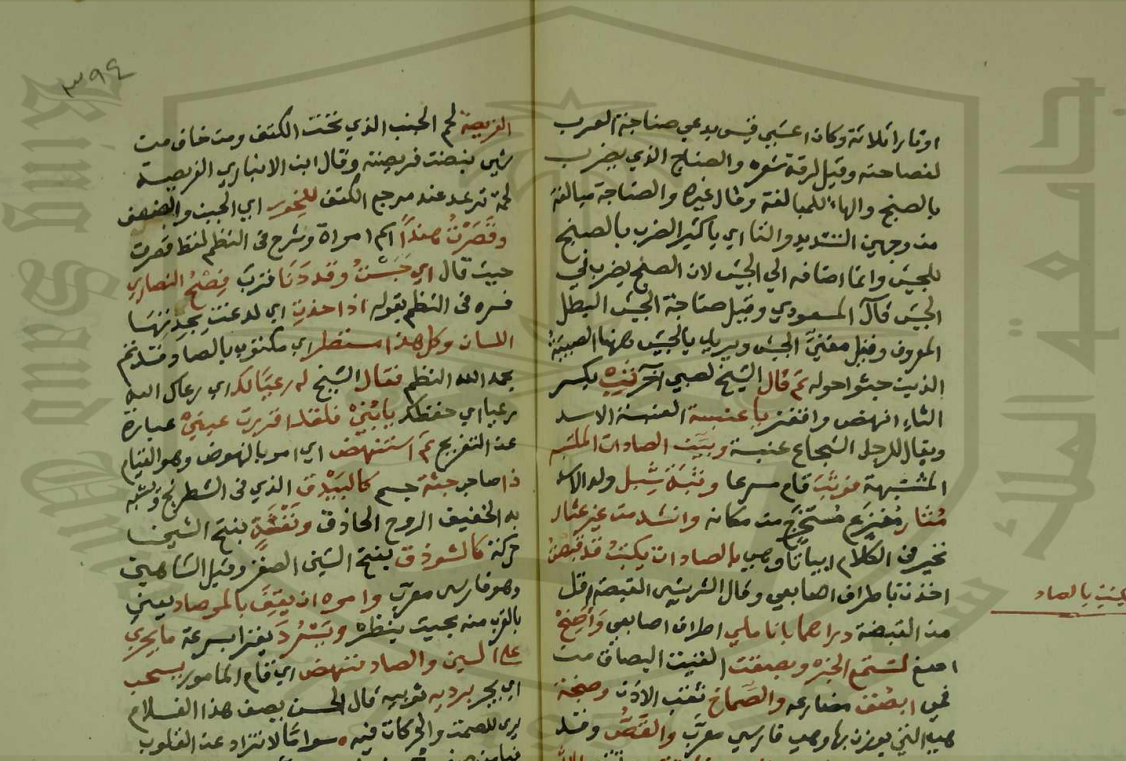 اوتارا ثلاثة وكان اعشى قيس يدعى صناجة العرب
لفصاحته وقيل لرقة شعره والصناج الذي يضرب
بالصنج والهاء للمبالغة وقال غيره والصناجة مبالغة
من وجهين التشديد والتا اي يا كثير الضرب بالصنج
للجيش وانما اضافه الي الجيش لان الصنج يضرب في
الجيش قال المسعودي وقيل صناجة الجيش البطل
المعروف وقيل مغني الجيش ويريد بالجيش ههنا الصبية
الذين حوله ثم قال الشيخ لصبي آخر ثب بكسر
الثاء انهض واقفز يا عنبسة العنبسة الاسد
ويقال للرجل الشجاع عنبسة وبين الصادات الملتبسة
المشتبهة فوثب قام مسرعا وثبة شبل ولد الاسد
مثار مفزع مستخرج من مكانه وانشد من غير عثار
تحير في الكلام ابياتا وهي بالصادات يكتب قد قبصت
اخذت باطراف اصابعي وقال الشريشي القبصة اقل
من القبضة دراهما بانا ملي اطراف اصابعي واصخ
لتستمع الخبر وبصقت القيت البصاق من
فمي والصماخ ثقب الاذن وصنجة
هي التي يوزن بها وهي فارسي معرب والقص وقد
يكتب بالصاد
٣٩٤
الفريصة لحم الجنب الذي تحت الكتف ومن خاف من
شي نبضت فريصته وقال ابن الانباري الفريصة
لحمة ترعد عند مرجع الكتف للخور اي الجبن والضعف
وقصرت هندا اسم امراة وشرح في النظم لفظ قصرت
حيث قال اي حبست وقد دنا قرب فصح النصاري
فسره في النظم بقوله اذا حذت اي لدغت
اللسان وكل هذا مستطر اي مكتوب بالصاد وقد تم
بحمد الله النظم فقال الشيخ له رعيا لك اي رعاك الله
رعيا اي حفظك يا بني فلقد اقررت عيني عبارة
عن التفريح ثم استنهض اي امر بالنهوض وهو القيام
ذا صاحب جثة جسم كالبيذق الذي في الشطرنج وشبه
به الخفيف الروح الحاذق ونغشة بفتح الشين
حركة كالشوذق بفتح الشين الصقر وقيل الشاهين
وهو فارسي معرب وامره ان يقف بالمرصاد يعني
بالقرب منه بحيث ينظره ويسرد يقرا بسرعة ما يجري
على السين والصاد فنهض اي قام المامور يسحب
اي يجر برديه ثوبيه قال الحسن يصف هذا الغلام